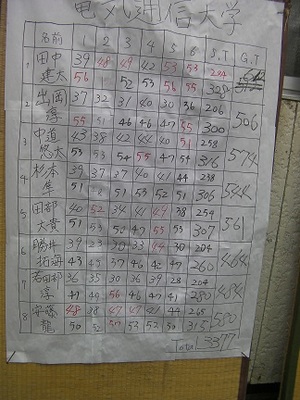 電気通信大学
名前 1 2 3 4 5 6 S.T G.T
1 田中 39 48 49 42 53 53 284
健太 56 52 53 56 55
2 出岡 37 32 31 40 30 36 206 506
淳 55 51 46 56 47 55 300
3 中道 43 38 42 44 40 51 258 574
悠太 53 53 54 55 47 54 316
4 杉本 39 37 27 40 41 44 238 544
隼 51 51 53 52 51 306
5 田部 40 52 34 41 49 38 254 561
大貴 51 53 50 47 55 53 307
6 勝井 39 23 30 33 49 30 204 464
拓海 43 45 37 46 42 47 260
7 若田部 36 35 30 36 39 28 204 484
淳 47 40 56 46 47 280
8 安藤 48 38 47 47 41 44 265 580
龍 50 52 57 53 52 50 315
Total 3977